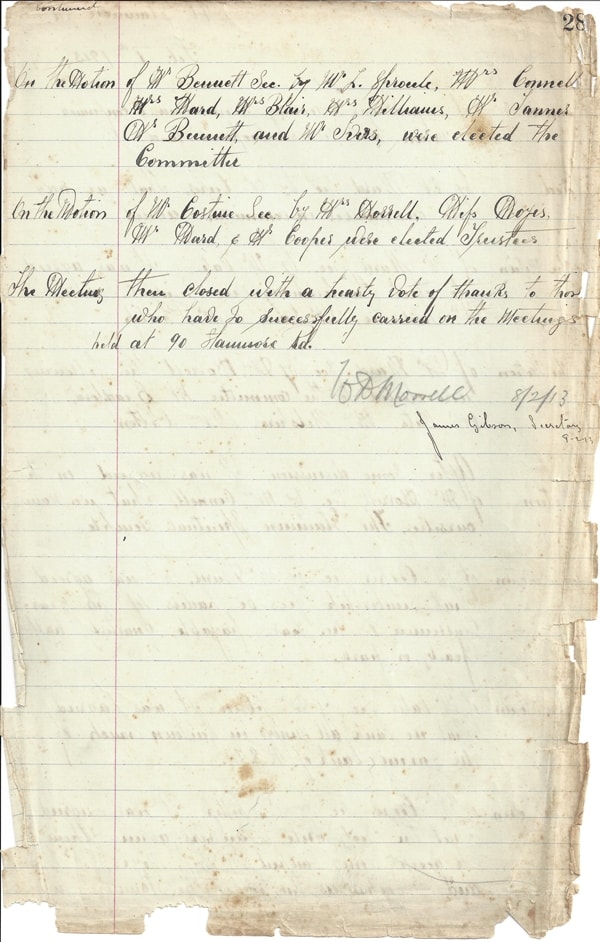 continued
28
On the Motion of Mr Bennett Sec. by Mr L. Sproule, Mrs Connell
Mrs Ward, Mrs Blair, Mrs Williams, Mr Tanner
Mr Bennett, and Mr were elected the
Committee
On the Motion of Mr Costine Sec by Mrs Morrell. Miss Noyes,
Mr Ward, & Mr Cooper were elected Trustees
The Meeting then closed with a hearty vote of thanks to those
who have so successfully carried on the Meetings
held at 90 Stanmore Rd.
W D Morrell 8/2/13
James Gibson, Secretary